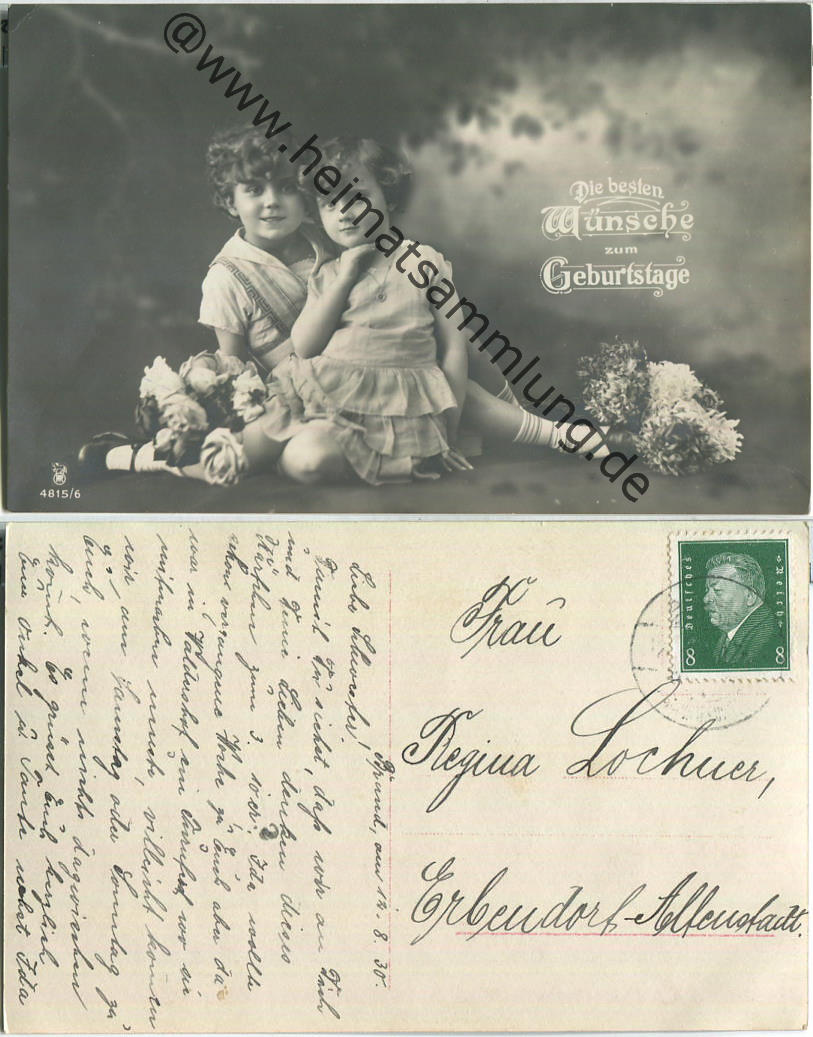 @www.heimatsammlung.de
Die besten
Wünsche
zum
Geburtstage
4815/6
Deutsches Reich
8 8
Frau
Regina Lochner,
Erbendorf-Altenstadt.
Brünst, am 12. 8. 30.
Liebe Schwester!
Damit Du siehst, daß wir an Dich
und Deine Lieben denken dieses
Kärtchen zum 3. Ida wollte
schon vergangene Woche zu Euch aber da
war in Waldershof ein wo sie
mitmachen mußte, vielleicht kommen
wir am Samstag oder Sonntag zu
Euch, wenn nichts dazwischen
kommt. Es grüßt Euch herzlich
Euer Onkel u. Tante nebst Ida